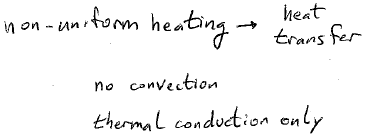 non-uniform heating → heat transfer
no convection
thermal conduction only